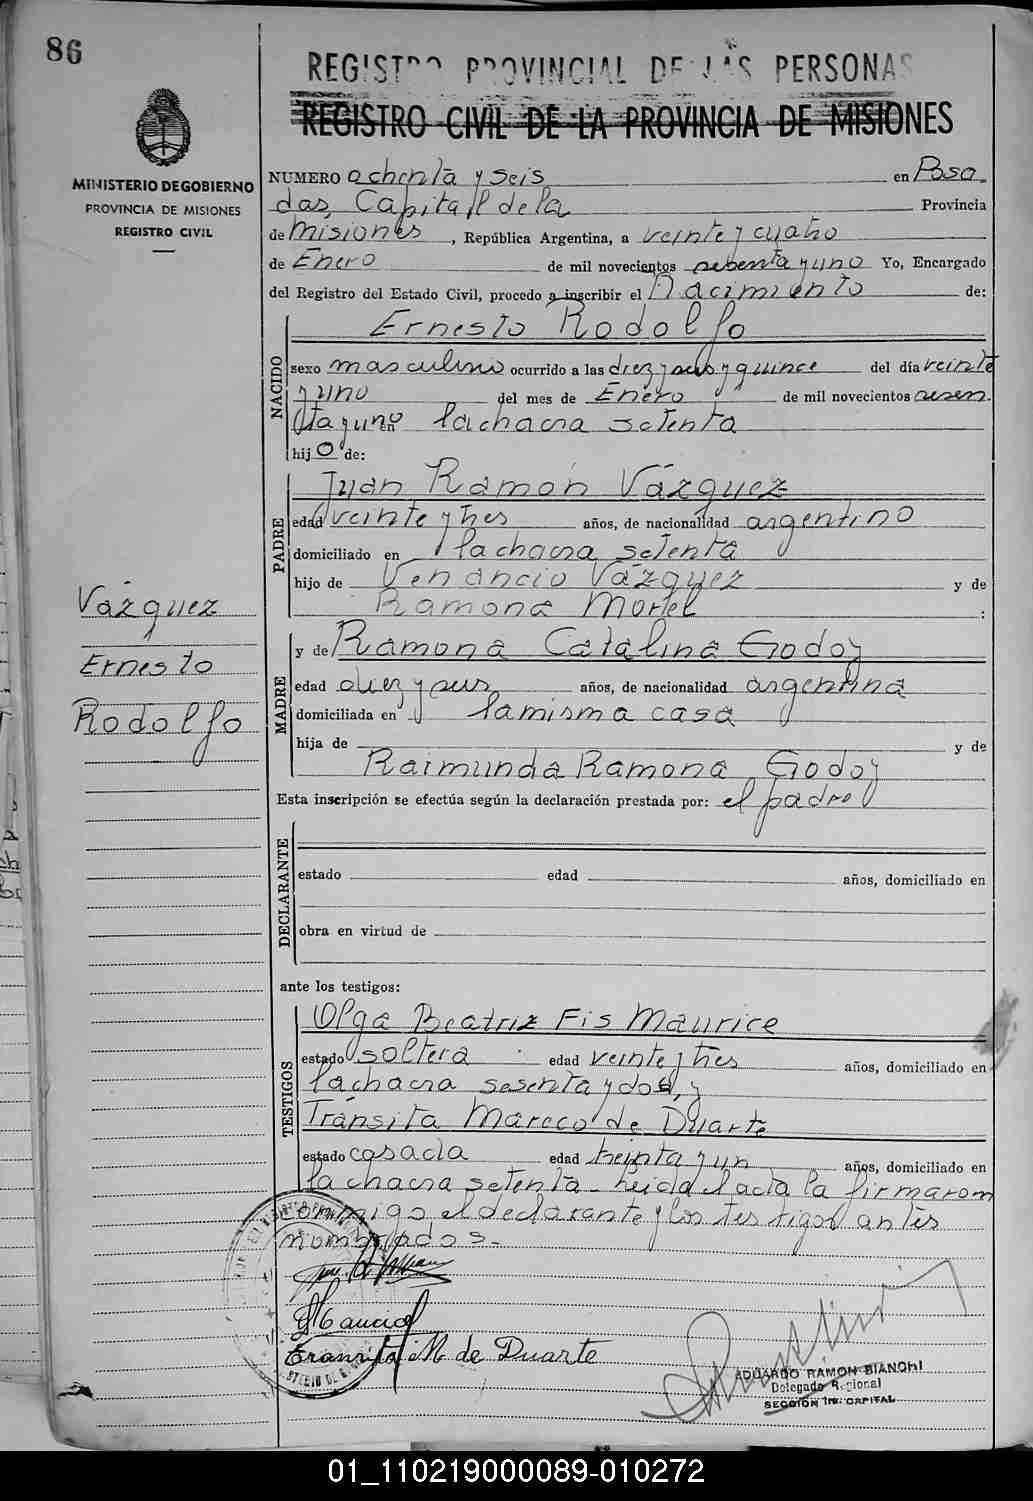 86
REGISTRO PROVINCIAL DE LAS PERSONAS
REGISTRO CIVIL DE LA PROVINCIA DE MISIONES
MINISTERIO DE GOBIERNO
PROVINCIA DE MISIONES
REGISTRO CIVIL
NUMERO ochenta y seis en Posa
das, Capital de la Provincia
de Misiones, República Argentina, a veinte y cuatro
de Enero de mil novecientos sesenta y uno Yo, Encargado
del Registro del Estado Civil, procedo a inscribir el Nacimiento de:
NACIDO
Ernesto Rodolfo
sexo masculino ocurrido a las diez y seis y quince del día veinte
y uno del mes de Enero de mil novecientos sesen
ta y uno en la chacra setenta
hijo de:
PADRE
Juan Ramón Vázquez
edad veinte y tres años, de nacionalidad argentino
domiciliado en la chacra setenta
hijo de Venancio Vázquez y de
Ramona Morel :
MADRE
y de Ramona Catalina Godoy
edad diez y seis años, de nacionalidad argentina
domiciliada en la misma casa
hija de y de
Raimunda Ramona Godoy
Esta inscripción se efectúa según la declaración prestada por: el padre
DECLARANTE
estado edad años, domiciliado en
obra en virtud de
ante los testigos:
TESTIGOS
Olga Beatriz Fis Maurice
estado soltera edad veinte y tres años, domiciliado en
la chacra sesenta y dos, y
Tránsita Mareco de Duarte
estado casada edad treinta y un años, domiciliado en
la chacra setenta - leída el acta la firmaron
conmigo, el declarante y los testigos antes
nombrados.-
Vázquez
Ernesto
Rodolfo
Transita M de Duarte
EDUARDO RAMON BIANCHI
Delegado Regional
SECCIÓN 1ra. CAPITAL
01_110219000089-010272